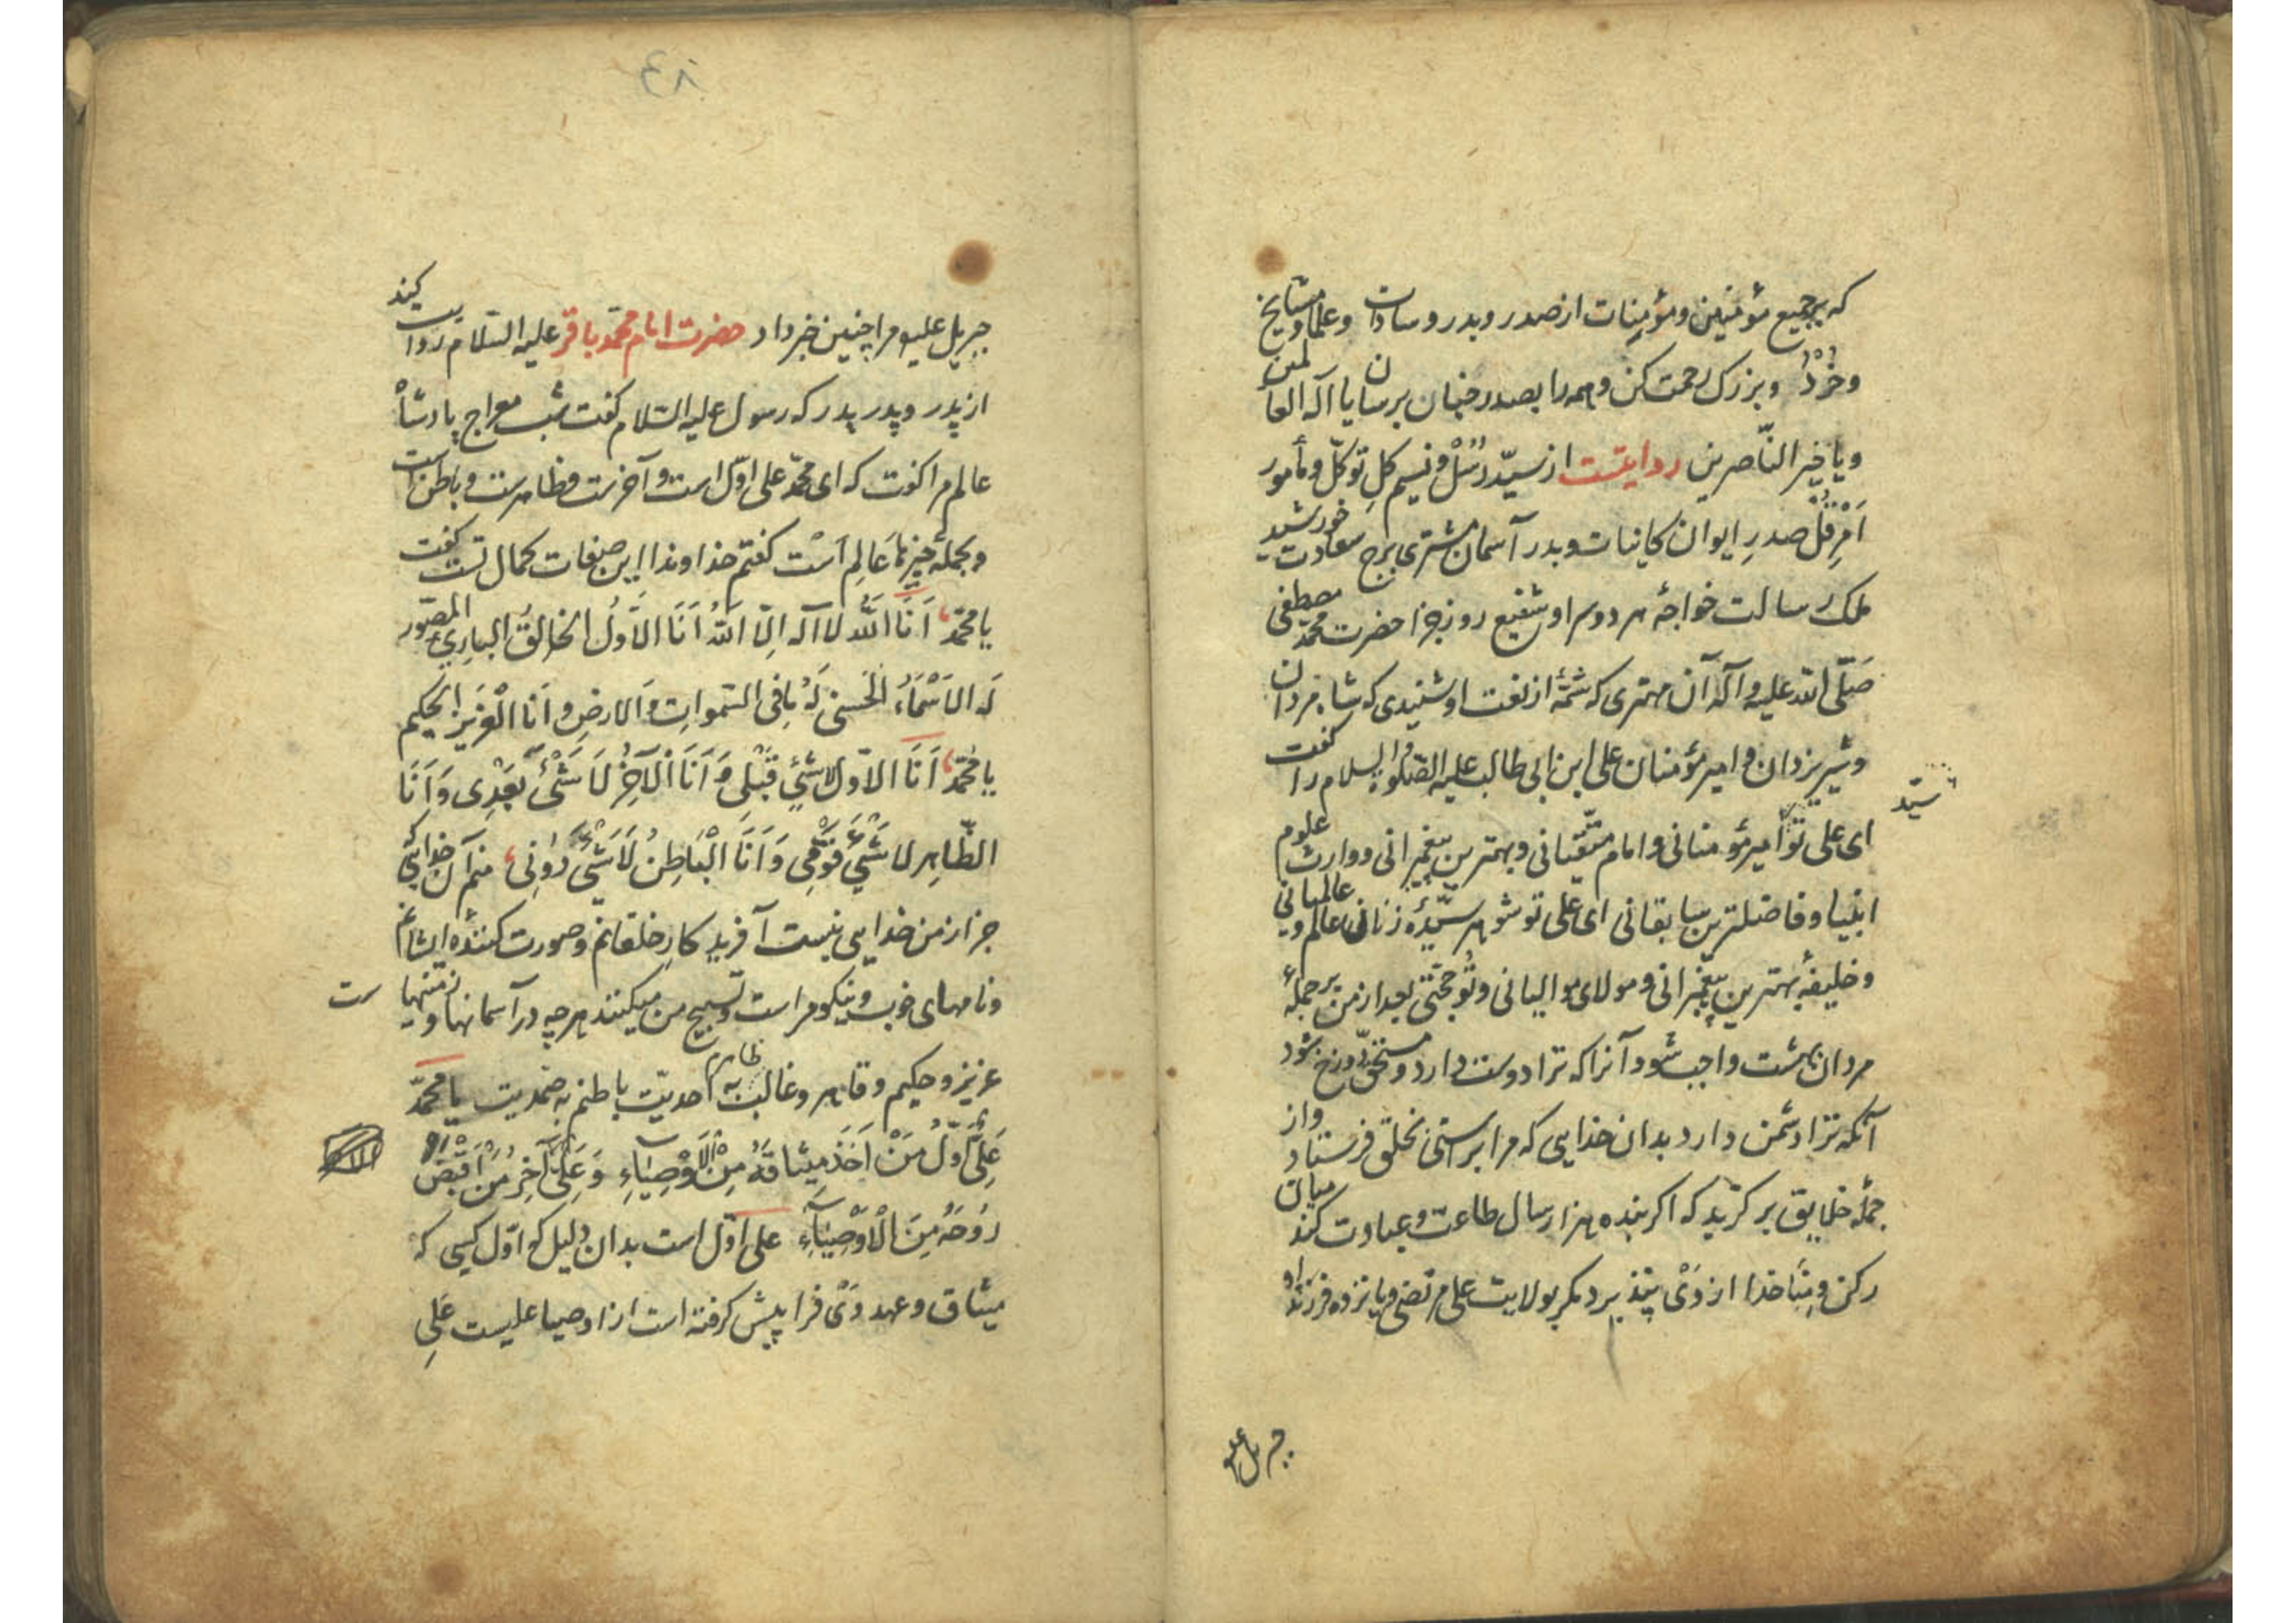 که بر جمیع مؤمنین و مؤمنات از صدر و بدر و سادات و علما و مشایخ
و خُرد و بزرک رحمت کن و همه را بصدر جنان برسان یا اله العالمین
و یا خیر النّاصرین روایتست از سیّد رُسُل و نسیم کلِ توکّل و مأمور
اَمْرِ قُلْ صدرِ ایوان کاینات و بدر آسمان مشتری برج سعادت خورشید
ملک رسالت خواجهٔ هر دو سرا و شفیع روز جزا حضرت محمّد مصطفی
صَلّی الله علیه و آله آن مهتری که شمّهٔ از نعت او شنیدی که شاه مردان
و شیر یزدان و امیر مؤمنان علی ابن ابی طالب علیه الصّلوة والسلام را کفت
سیّد
ای علی تو امیر مؤمنانی و امام متّقیانی و بهترین پیغمبرانی و وارث علوم
انبیا و فاضلترین سابقانی ای علی تو شوهر سیّدهٔ زنان عالم و عالمیانی
و خلیفهٔ بهترین پیغمبرانی و مولای موالیانی و تو حجّتی بعد از من بر جملهٔ
مردان بهشت واجب شود آنرا که ترا دوست دارد و مستحقّ دوزخ شود
آنکه ترا دشمن دارد بدان خدایی که مرا براستی بخلق فرستاد و از
جملهٔ خلایق بر کزید که اکر بنده هزار سال طاعت و عبادت کند میان
رکن و خدا از وَی پنذیرد مکر بولایت علی مرتضی و یازده فرزند او
جبریل علیه
٤٨
جبریل علیه مرا چنین خبر داد حضرت امام محمّد باقر علیه السّلام روایت کیند
از پدر و پدر پدر که رسول علیه السّلام کفت شب معراج پادشاه
عالم مرا کفت که ای محمّد علی اوّل است و آخرست و ظاهرست و باطن است
و بجملهٔ چیزها عَالِم اَسْت کفتم خداوندا این صفات کمال تست کفت
یا محمّد اَنَا اللهُ لا آله اِلّا اللهُ اَنَا الاَوّلُ الخالِقُ البارِیُ المصوّر
لَه الاَسْمَاءُ الحُسنی لَهُ مافی السّمواتِ وَالارضِ و اَنا الْعَزیز الحکیم
یا محمّد اَنَا الاوّل لا شیْئ قَبْلی وَ اَنَا اَلآخِرُ لَا شَیْئَ بَعْدِی وَ اَنَا
الظّاهِر لا شَیْئَ فَوْقِی وَ اَنَا الْبَاطِنُ لَا شَیْئَ دُونِی منم آن خدایی کی
جز از من خدایی نیست آفریدکار خلقانم و صورت کنندهٔ ایشانم
و نامهای خوب و نیکو مراست و تسبیح من میکنند هرچه در آسمانها و زمینها ست
عزیز و حکیم و قاهر و غالب ظاهرم به احدیّت باطنم به صمدیت یا محمّد
عَلِیٌّ اَوّلُ مَنْ اَخَذَ مِیثاقَهُ مِنْ الاَوْصِیَاءِ وَ عَلِیٌّ آخِرِ مَنْ اَقْبَضُ
رُوحَهُ مِنَ الْاَوْصِیَاءِ علی اوّل است بدان دلیل که اوّل کسی که
میثاق و عهد وَی فرا پیش کرفته است از اوصیا علیست عَلِی